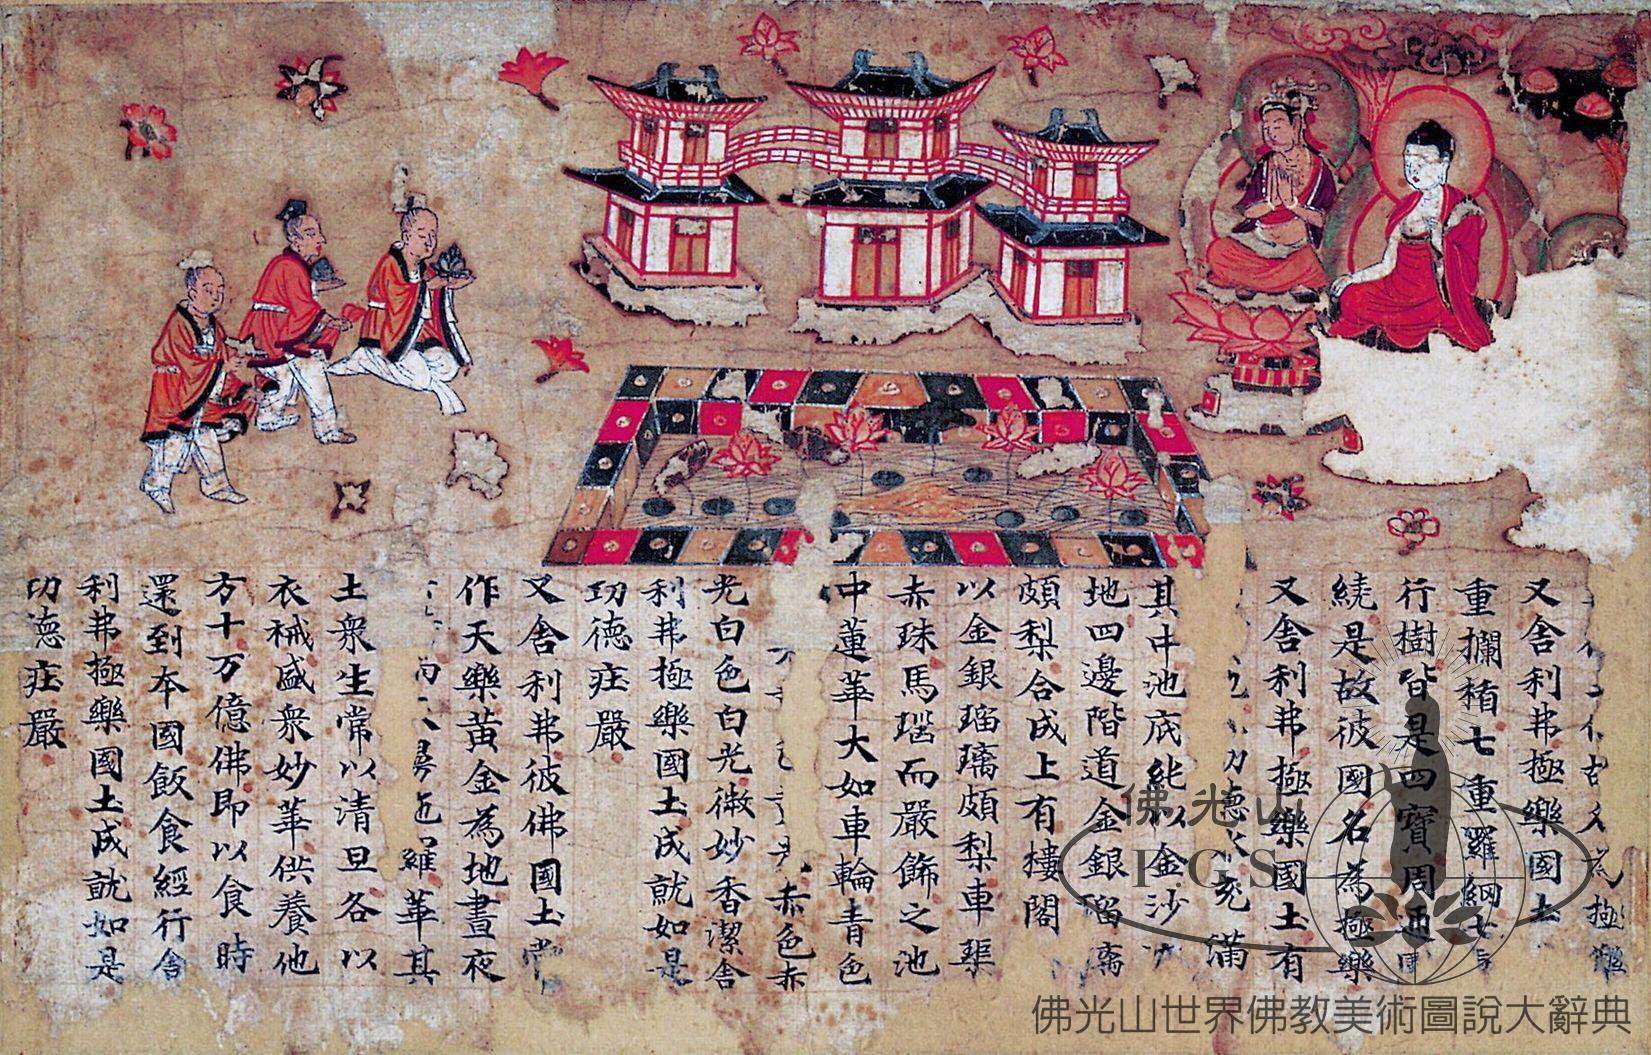 為極樂
又舍利弗極樂國土
重攔楯七重羅網七重
行樹皆是四寶周
繞是故彼國名為極樂
又舍利弗極樂國土有
功德水充滿
其中池底純以金沙
地四邊階道金銀瑠璃
頗梨合成上有樓閣
以金銀瑠璃頗梨車渠
赤珠馬瑙而嚴飾之池
中蓮華大如車輪青色
赤色赤
光白色白光微妙香潔舍
利弗極樂國土成就如是
功德庄嚴
又舍利弗彼佛國土常
作天樂黃金為地晝夜
羅華其
土衆生常以清旦各以
衣裓盛衆妙華供養他
方十万億佛即以食時
還到本國飯食經行舍
利弗極樂國土成就如是
功德庄嚴
佛光山
F.G.S
佛光山世界佛教美術圖說大辭典